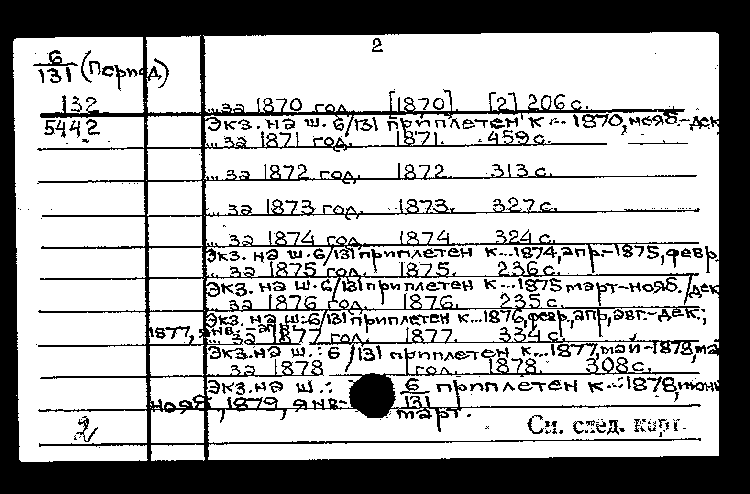 2
6/131 (Период)
132
5442
... за 1870 год. [1870]. [2] 206 с.
Экз. на ш. 6/131 приплетен к... 1870, нояб.-дек
... за 1871 год. 1871. 459 с.
... за 1872 год. 1872. 313 с.
... за 1873 год. 1873. 327 с.
... за 1874 год. 1874 324 с.
Экз. на ш. 6/131 приплетен к... 1874, апр.-1875, февр.
... за 1875 год. 1875. 236 с.
Экз. на ш. 6/131 приплетен к... 1875 март-нояб./дек
... за 1876 год. 1876. 235 с.
Экз. на ш.: 6/131 приплетен к... 1876, февр., апр., авг.-дек.;
1877, янв.-апр.
... за 1877 год. 1877. 334 с.
Экз. на ш.: 6/131 приплетен к... 1877, май-1878, ма
... за 1878 год. 1878. 308 с.
Экз. на ш.: 6/131 приплетен к... 1878, июнь
нояб., 1879, янв.- март.
2
См. след. карт.